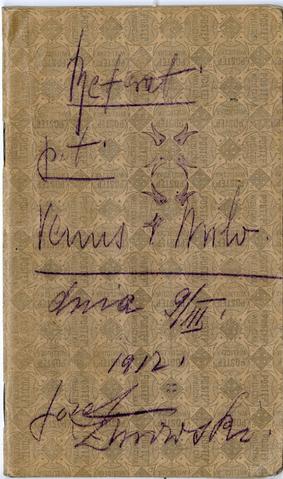 Referat.
p.t.
Venus z Milo.
dnia 9/III.
1912.
Józef
Żurowski.